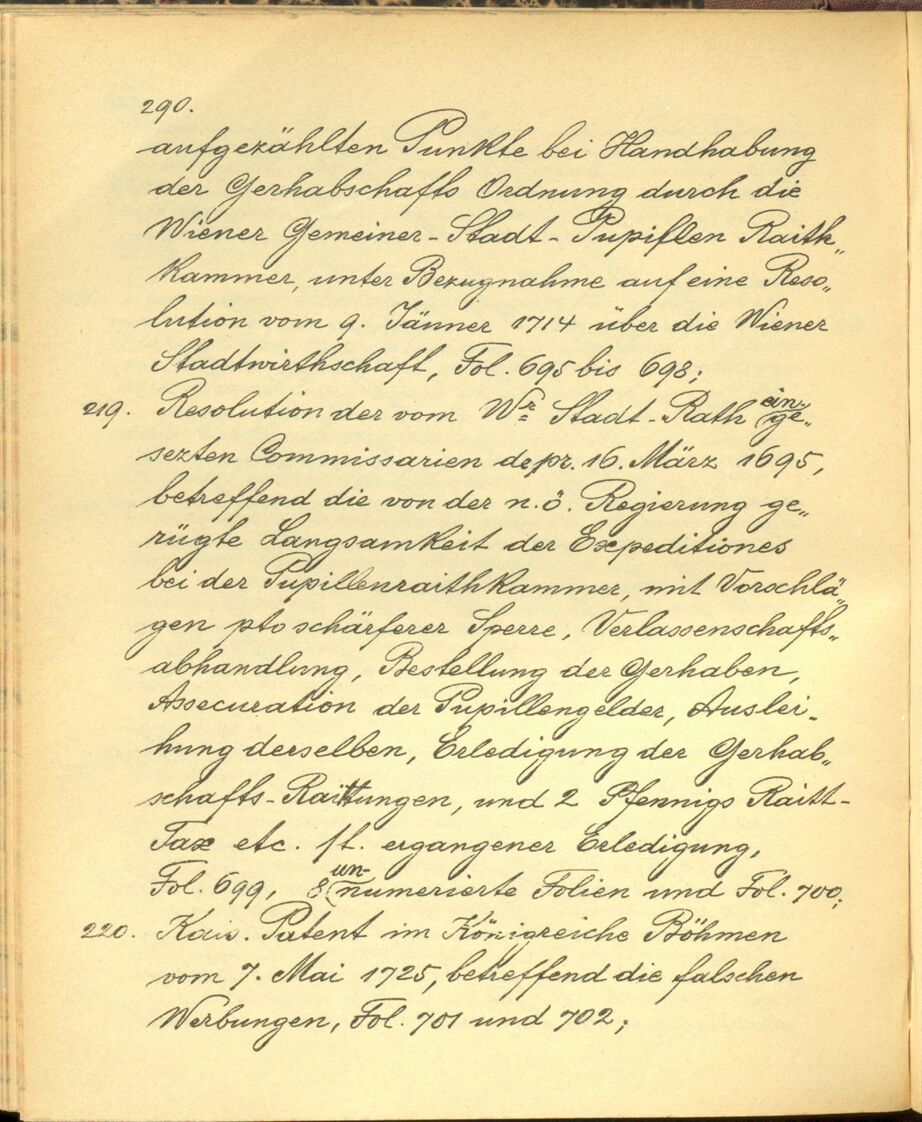 290.
aufgezählten Punkte bei Handhabung
der Gerhabschafts Ordnung durch die
Wiener Gemeiner-Stadt-Pupillen Raith„
Kammer, unter Bezugnahme auf eine Reso„
lution vom 9. Jänner 1714 über die Wiener
Stadtwirthschaft, Fol. 695 bis 698;
219. Resolution der vom Wr Stadt-Rath ein-ge„
sezten Commissarien de pr. 16. März 1695,
betreffend die von der n.ö. Regierung ge„
rügte Langsamkeit der Expeditiones
bei der Pupillenraithkammer, mit Vorschlä„
gen pto schärferer Sperre, Verlassenschafts„
abhandlung, Bestellung der Gerhaben,
Assecuration der Pupillengelder, Auslei„
hung derselben, Erledigung der Gerhab„
schafts-Raittungen, und 2 Pfennigs Raitt-
Tax etc. s. t. ergangener Erledigung,
Fol. 699, 8 un-numerierte Folien und Fol. 700;
220. Kais. Patent im Königreiche Böhmen
vom 7. Mai 1725, betreffend die falschen
Werbungen, Fol. 701 und 702;